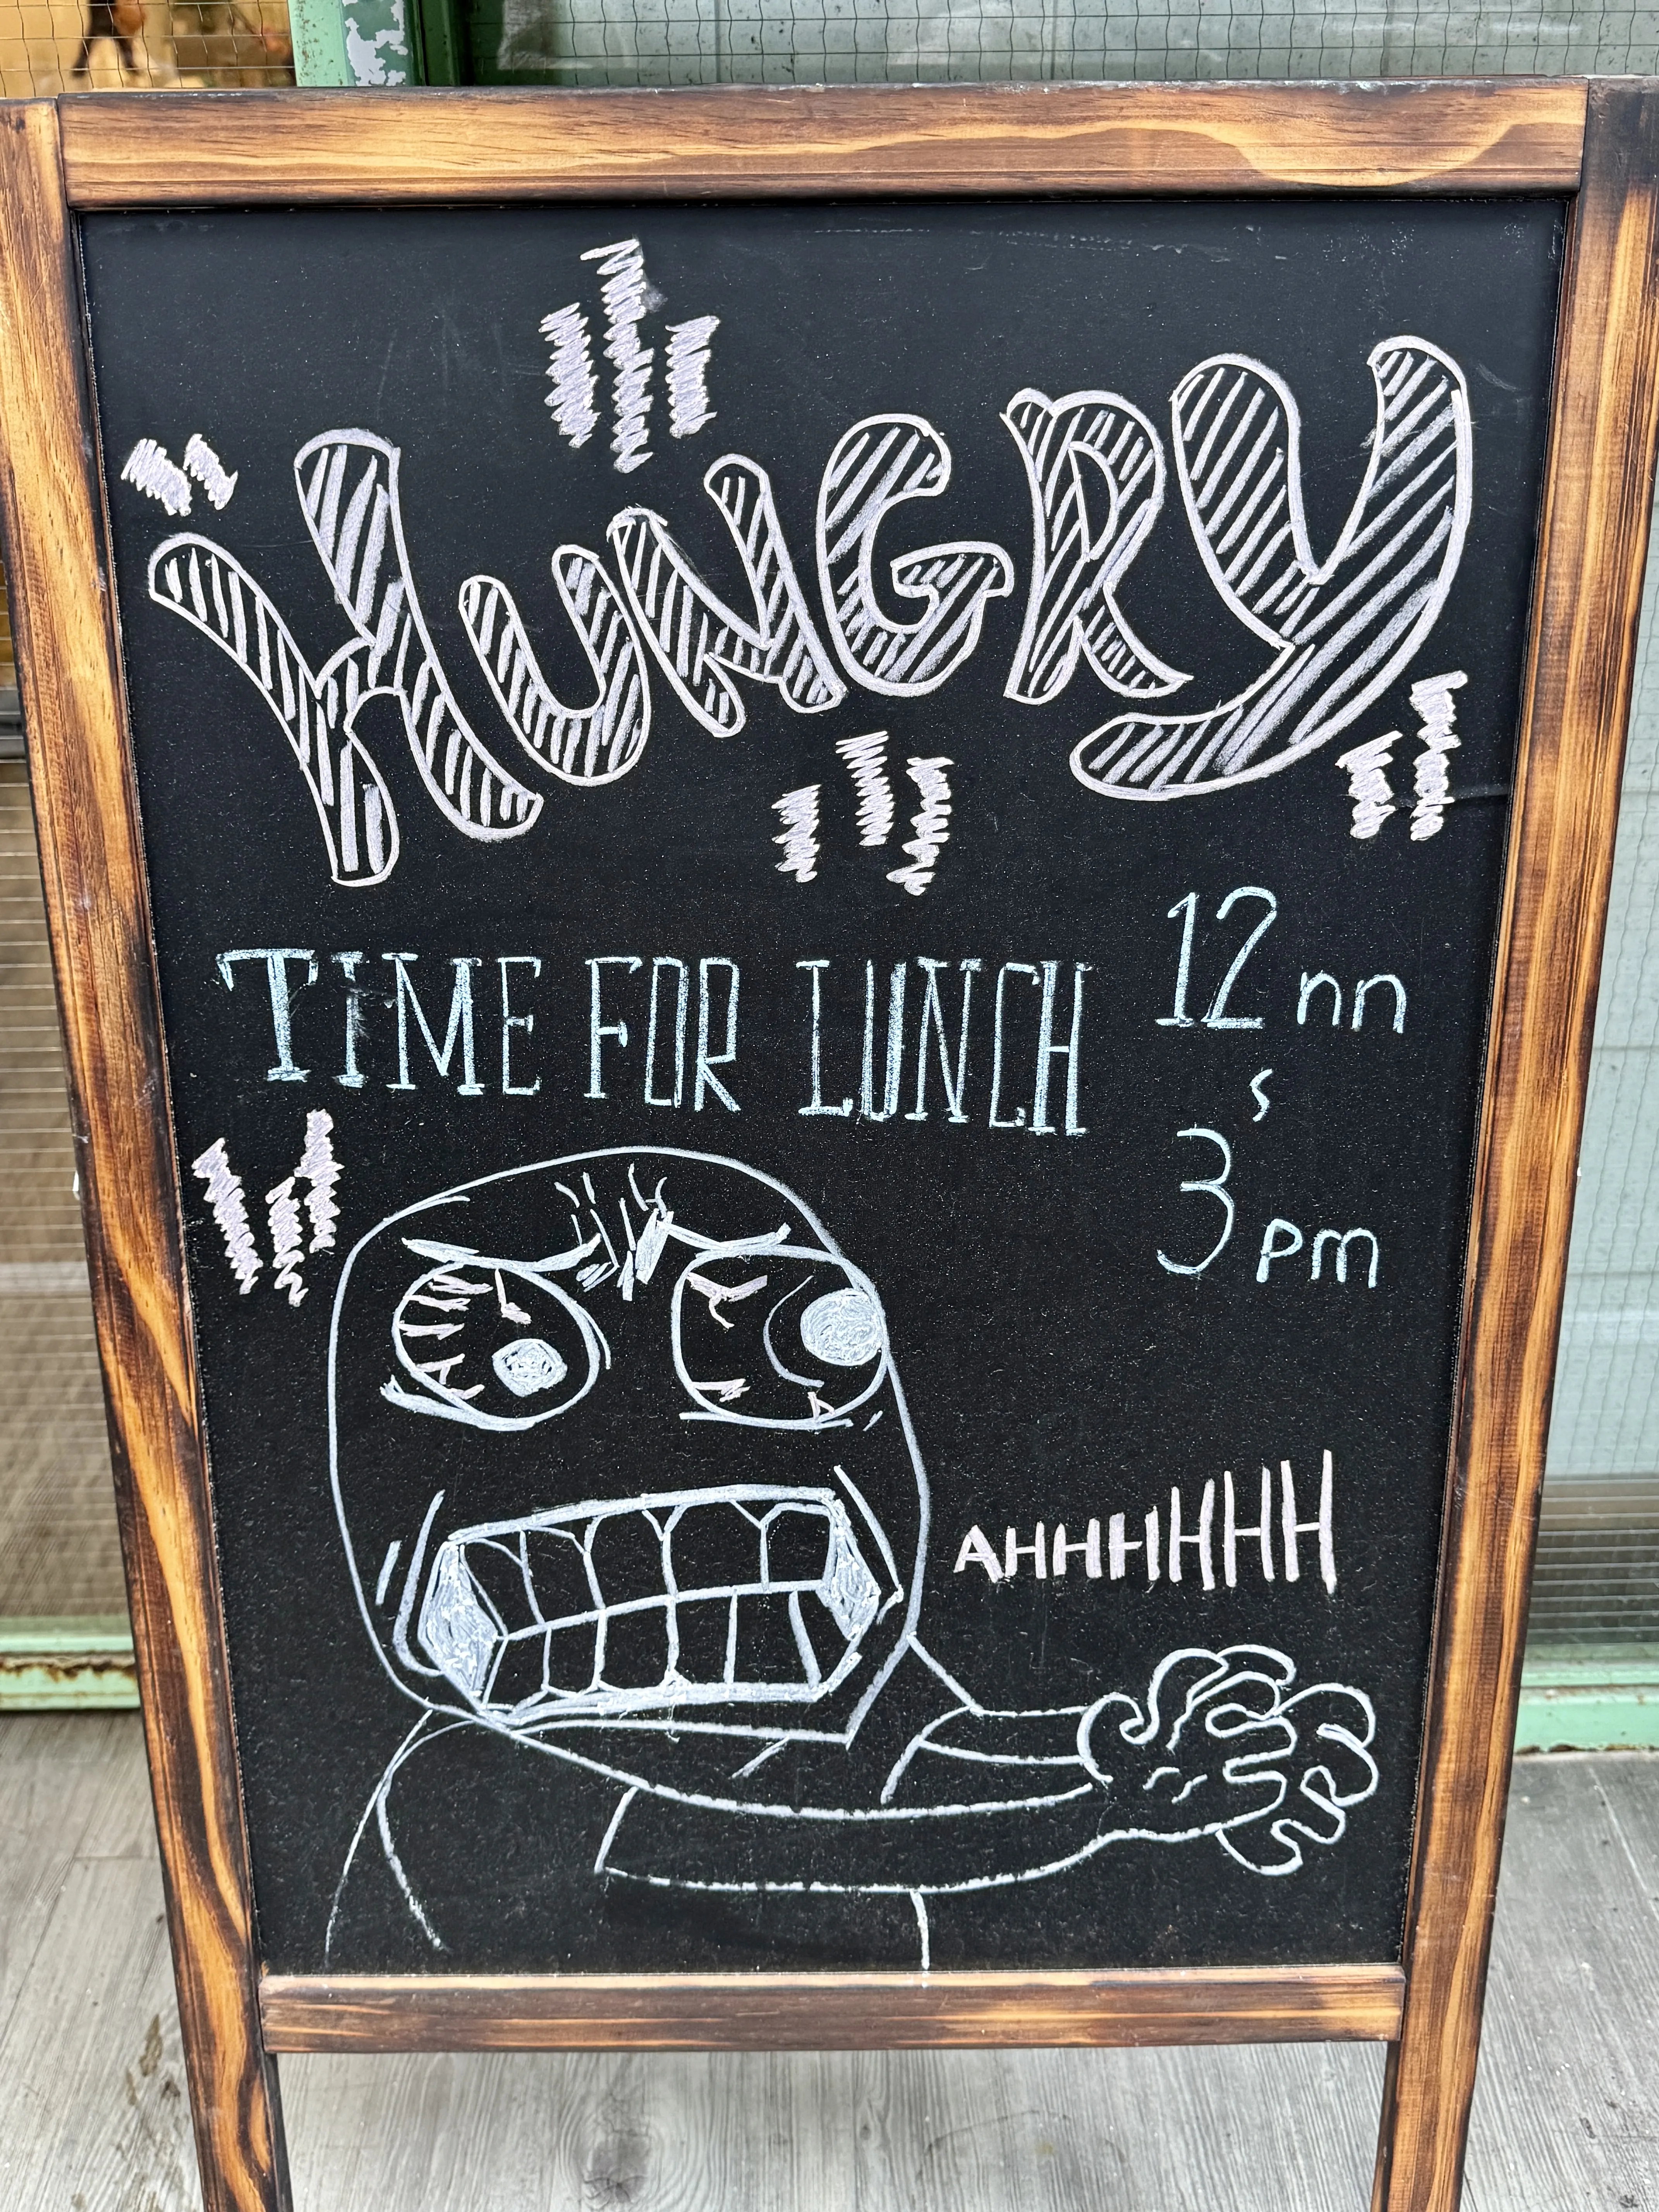 HUNGRY
TIME FOR LUNCH
12 nn
s
3 pm
AHHHHHHH